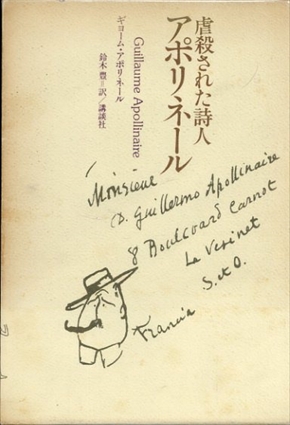 虐殺された詩人
アポリネール
Guillaume Apollinaire
ギヨーム・アポリネール
鈴木豊=訳/講談社
Monsieur
D. Guillermo Apollinaire
8 Boulevard Carnot
Le Vesinet
S. et O.
Francia